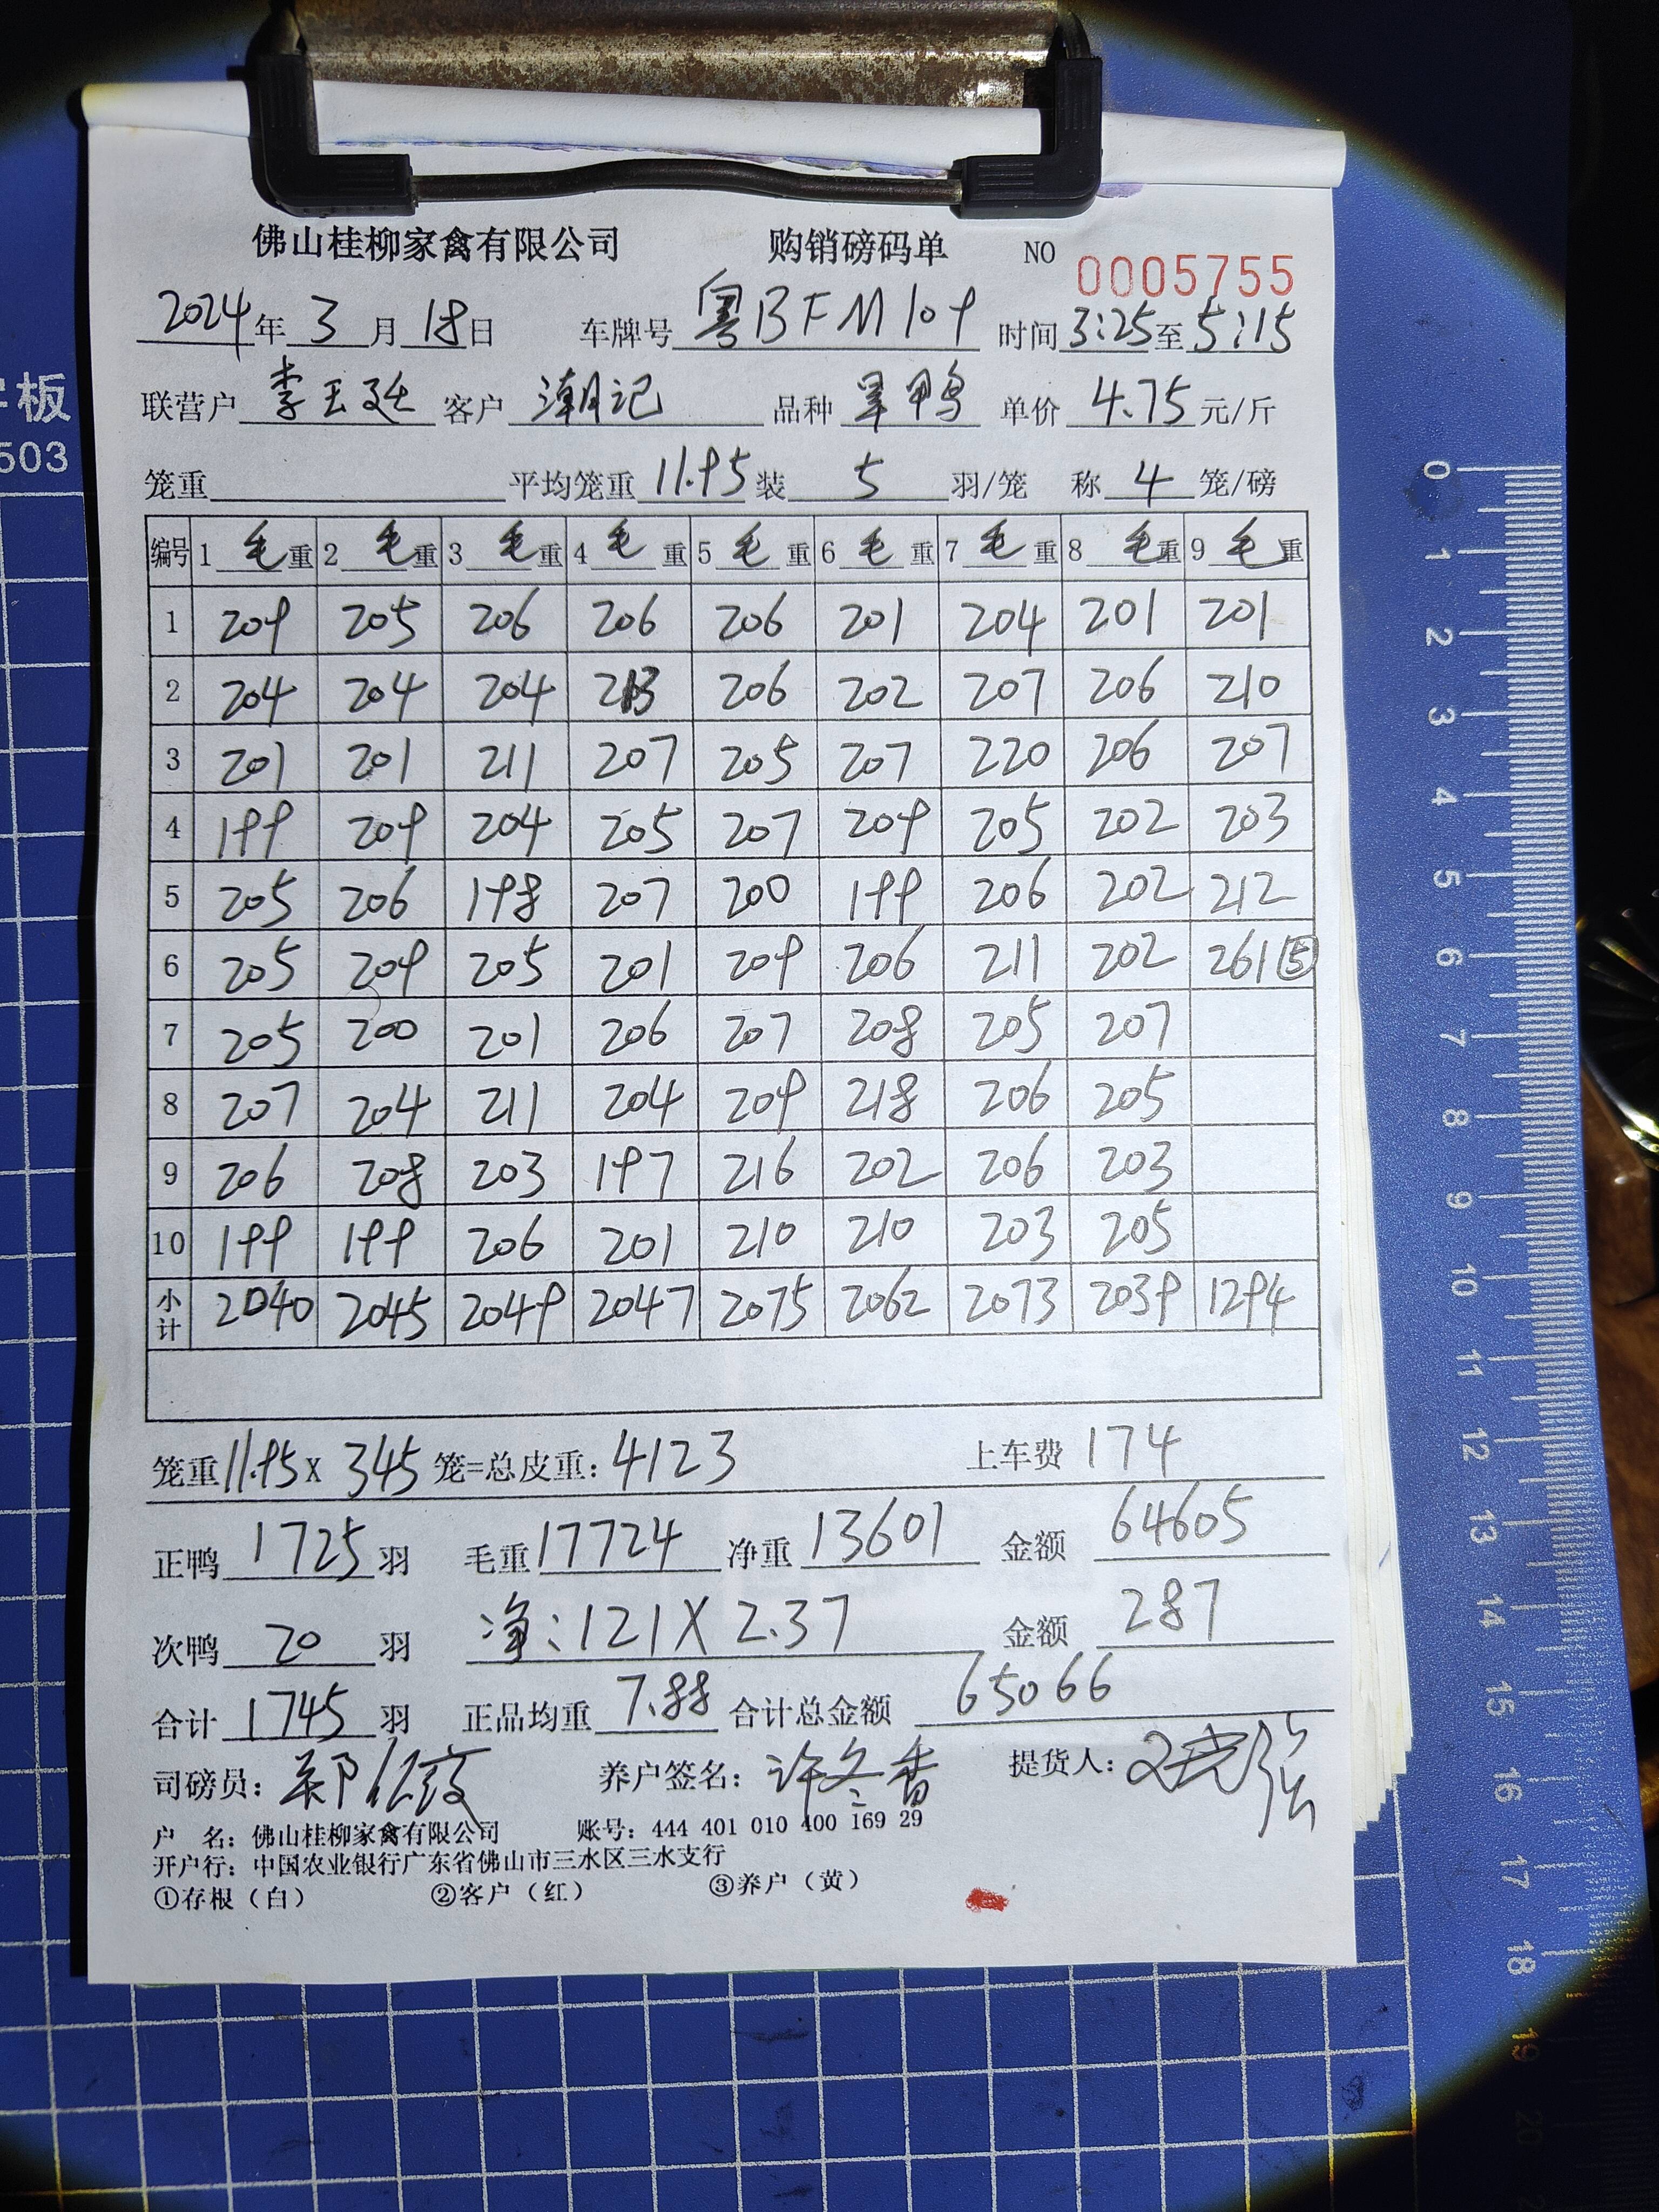 佛山桂柳家禽有限公司 购销磅码单 NO 0005755
2024年3月18日 车牌号 粤BFM109 时间3:25至5:15
联营户 李玉廷 客户 潮记 品种 旱鸭 单价 4.75 元/斤
笼重 平均笼重 11.95 装 5 羽/笼 称 4 笼/磅
编号 1 毛重 2 毛重 3 毛重 4 毛重 5 毛重 6 毛重 7 毛重 8 毛重 9 毛重
1 209 205 206 206 206 201 204 201 201
2 204 204 204 213 206 202 207 206 210
3 201 201 211 207 205 207 220 206 207
4 199 209 204 205 207 209 205 202 203
5 205 206 198 207 200 199 206 202 212
6 205 209 205 201 209 206 211 202 261⑤
7 205 200 201 206 207 208 205 207
8 207 204 211 204 209 218 206 205
9 206 208 203 197 216 202 206 203
10 199 199 206 201 210 210 203 205
小计 2040 2045 2049 2047 2075 2062 2073 2039 1294
笼重11.95x 345 笼=总皮重:4123 上车费 174
正鸭 1725 羽 毛重17724 净重 13601 金额 64605
次鸭 20 羽 净:121X2.37 金额 287
合计 1745 羽 正品均重 7.88 合计总金额 65066
司磅员: 郑 养户签名: 许冬香 提货人:
户 名: 佛山桂柳家禽有限公司 账号: 444 401 010 400 169 29
开户行: 中国农业银行广东省佛山市三水区三水支行
①存根（白） ②客户（红） ③养户（黄）
板
503
0
1
2
3
4
5
6
7
8
9
10
11
12
13
14
15
16
17
18
19
20